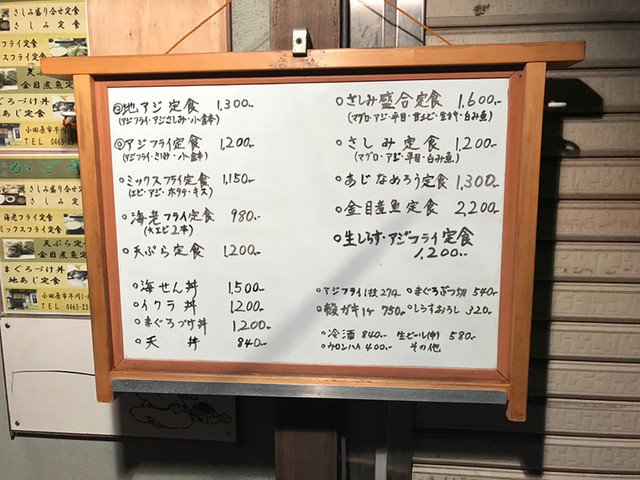 さしみ盛り合せ定食
さしみ定食
フライ定食
スフライ定食
天ぷら定
金目煮魚定
まぐろづけ丼
あじ定食
小田原市早川1-
TEL 0465-2
さしみ盛り合せ定食
さしみ定食
海老フライ定食
ミックスフライ定食
天ぷら定食
金目煮魚定食
まぐろづけ丼
地あじ定食
小田原市早川1-
TEL 0465-23
◎地アジ定食 1,300-
◎アジフライ定食 1,200-
○ミックスフライ定食 1,150-
(エビ・アジ・ホタテ・キス)
○海老フライ定食 980-
(大エビ2本)
○天ぷら定食 1,200-
○海せん丼 1,500-
○イクラ丼 1,200-
○まぐろづけ丼 1,200-
○天 丼 840-
○さしみ盛合定食 1,600-
○さしみ定食 1,200-
(マグロ・アジ・平目・白み魚)
○あじなめろう定食 1,300-
○金目煮魚定食 2,200-
○生しらす・アジフライ定食
1,200-
○アジフライ1枚 274- ○まぐろぶつ切 540-
○殻ガキ1ケ 750- ○しらすおろし 320-
○冷酒 840- 生ビール(中) 580-
○ウロンハイ 400- その他